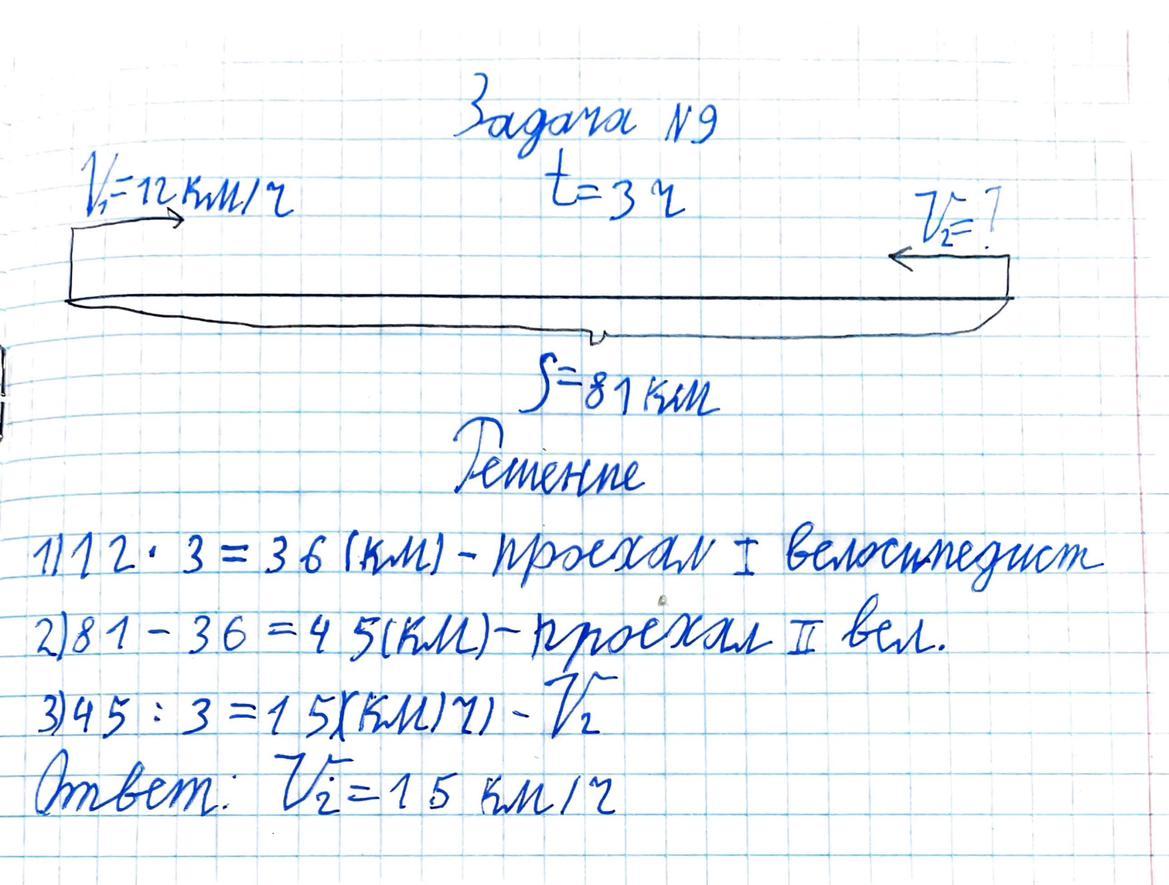 Задача N9
V₁=12 км/ч
t=3 ч
V₂=?
S=81 км
Решение
1) 12 · 3 = 36 (км) - проехал I велосипедист
2) 81 - 36 = 45 (км) - проехал II вел.
3) 45 : 3 = 15 (км/ч) - V₂
Ответ: V₂ = 15 км/ч